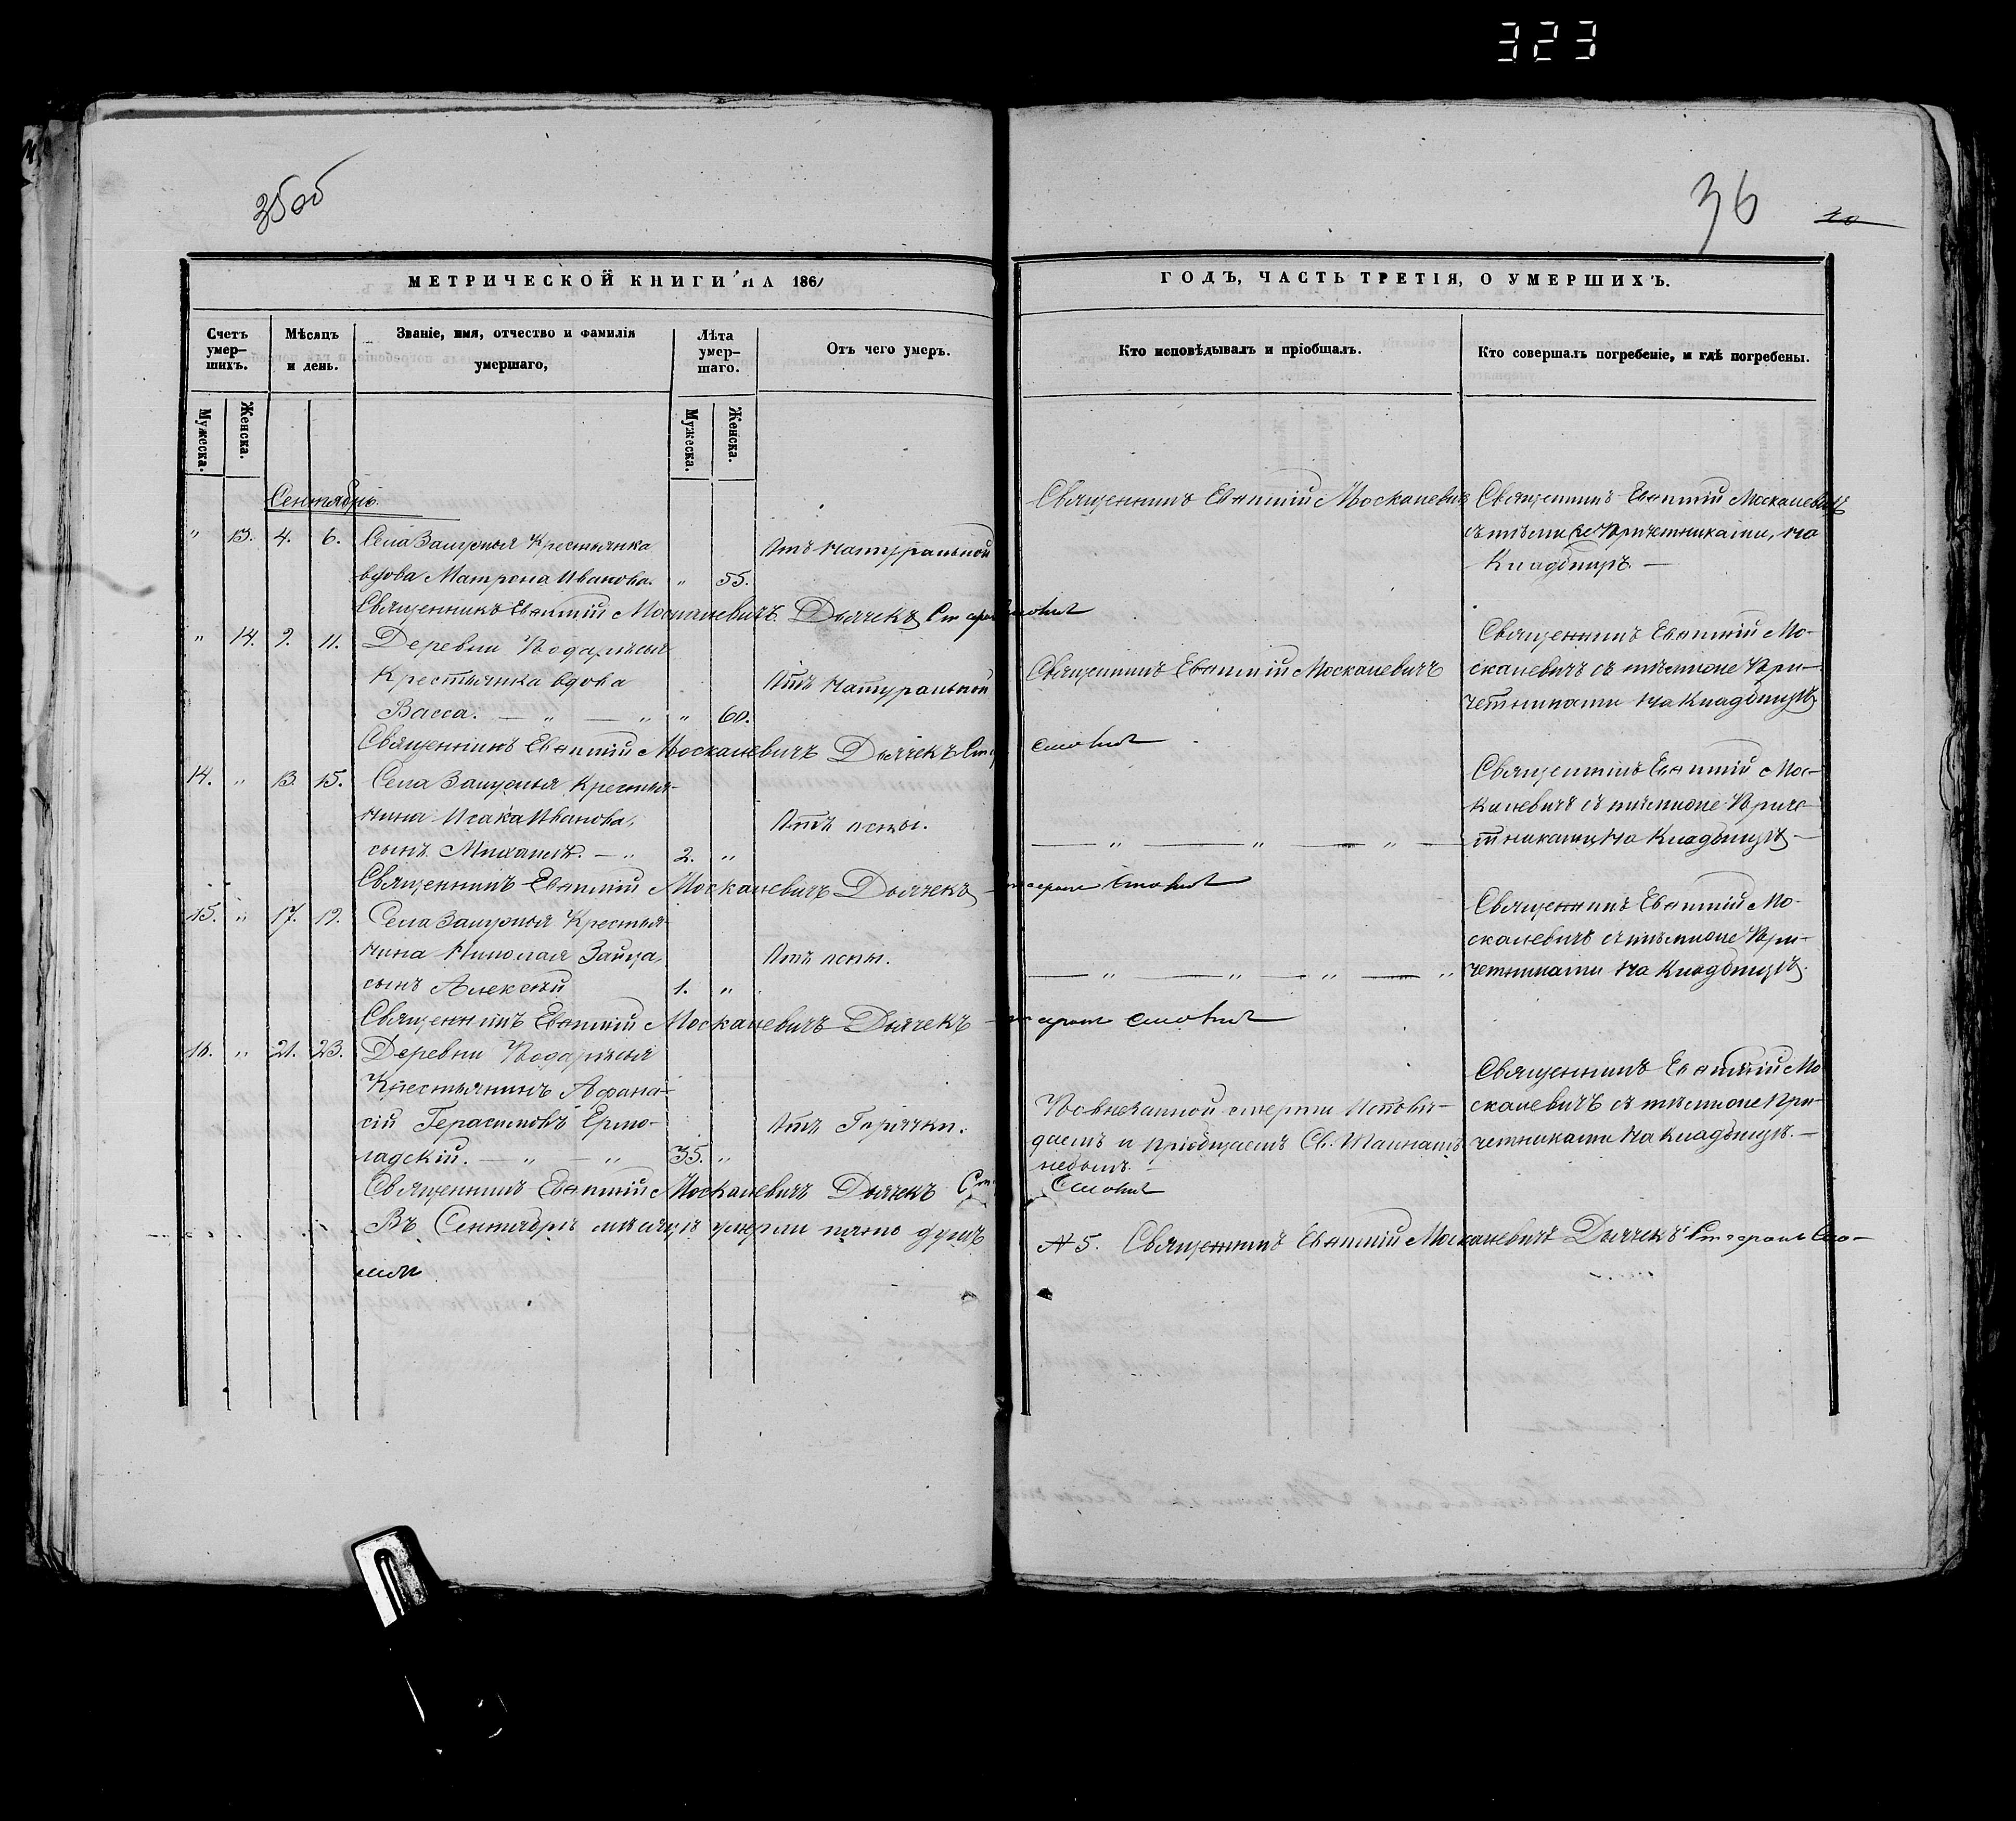 323
35об
36
МЕТРИЧЕСКОЙ КНИГИ НА 1861
ГОДЪ, ЧАСТЬ ТРЕТІЯ, О УМЕРШИХЪ.
Счетъ умер-шихъ.
Мѣсяцъ и день.
Званіе, имя, отчество и фамилія умершаго,
Лѣта умер-шаго.
Отъ чего умеръ.
Кто исповѣдывалъ и пріобщалъ.
Кто совершалъ погребеніе, и гдѣ погребены.
Мужеска.
Женска.
Мужеска.
Женска.
Сентябрь.
" 13. 4. 6. Села Крестьянка
вдова Матрона Иванова. " 55.
Отъ Натуральной
Священникъ Евѳимій Москалевичъ
Священникъ Евѳимій Москалевичъ
съ тѣми же Причетниками, на
Кладбищѣ. —
Священникъ Евѳимій Москалевичъ Дьячекъ
" 14. 9. 11. Деревни
Крестьянка вдова
Васса. — " — " " 60.
Отъ Натуральной
Священникъ Евѳимій Москалевичъ
Священникъ Евѳимій Мо-
скалевичъ съ тѣмиже При-
четниками на Кладбищѣ.
Священникъ Евѳимій Москалевичъ Дьячекъ
14. " 13. 15. Села Крестья-
нина Исака Иванова,
сынъ Михаилъ. — " 2. "
Отъ оспы.
— " — " — " —
Священникъ Евѳимій Мос-
калевичъ съ тѣмиже Приче-
тниками на Кладбищѣ —
Священникъ Евѳимій Москалевичъ Дьячекъ
15. " 17. 19. Села Крестья-
нина Николая Зайца,
сынъ Алексѣй 1. "
Отъ оспы.
— " — " — " — "
Священникъ Евѳимій Мо-
скалевичъ съ тѣмиже При-
четниками на Кладбищѣ.
Священникъ Евѳимій Москалевичъ Дьячекъ
16. " 21. 23. Деревни
Крестьянинъ Афана-
сій Герасимовъ Ермо-
ладскій. — " — " 35. "
Отъ Горячки.
смерти Исповѣ-
даемъ и пріобщаемъ Св. Таинамъ
небылъ.
Священникъ Евѳимій Мо
скалевичъ съ тѣмиже При-
четниками на Кладбищѣ. —
Священникъ Евѳимій Москалевичъ Дьячекъ
Въ Сентябрѣ мѣсяцѣ умерли пять душъ
№ 5. Священникъ Евѳимій Москалевичъ Дьячекъ